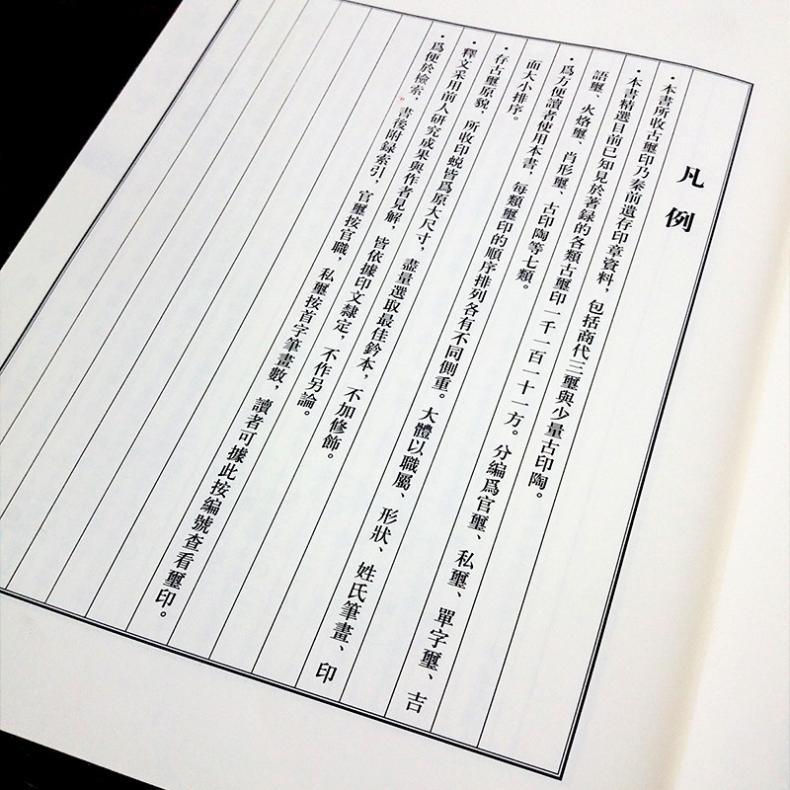 凡例
·本書所收古璽印乃秦前遺存印章資料，包括商代三璽與少量古印陶。
·本書精選目前已知見於著録的各類古璽印一千一百一十一方。分編爲官璽、私璽、單字璽、吉
語璽、火烙璽、肖形璽、古印陶等七類。
·爲方便讀者使用本書，每類璽印的順序排列各有不同側重。大體以職屬、形狀、姓氏筆畫、印
面大小排序。
·存古璽原貌，所收印蜕皆爲原大尺寸，盡量選取最佳鈐本，不加修飾。
·釋文采用前人研究成果與作者見解，皆依據印文隸定，不作另論。
·爲便於檢索，書後附録索引，官璽按官職，私璽按首字筆畫數，讀者可據此按編號查看璽印。